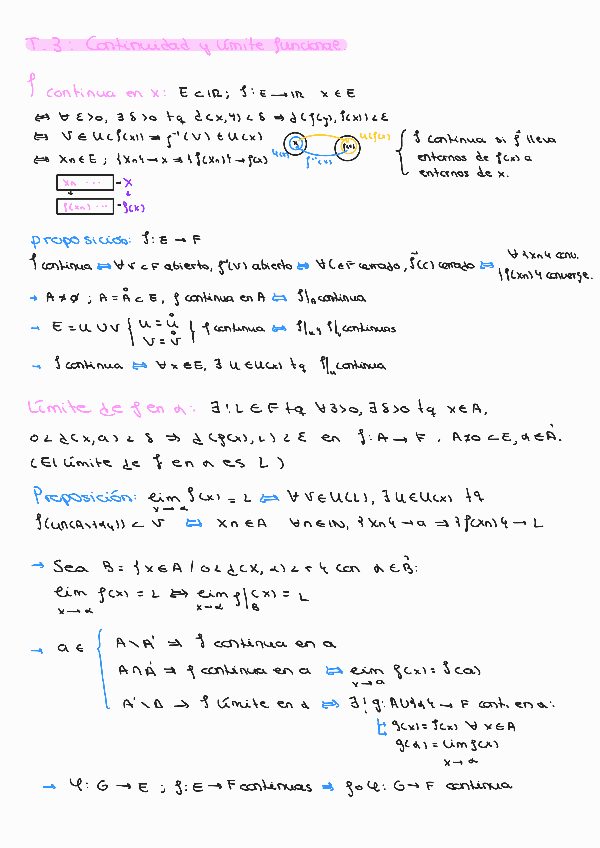 T.3: Continuidad y límite funcional.
f continua en x: E ⊂ ℝ; f: E → ℝ x ∈ E
⇔ ∀ ε>0, ∃ δ>0 tq d(x,y) < δ ⇒ d(f(y), f(x)) < ε
⇔ V ∈ U(f(x)) ⇒ f⁻¹(V) ∈ U(x)
⇔ xn ∈ E; {xn} → x ⇒ {f(xn)} → f(x)
U(x) x f⁻¹(x) f(x) U(f(x))
f continua si f lleva
entornos de f(x) a
entornos de x.
xn ... → x
f(xn) ... → f(x)
proposición: f: E → F
f continua ⇔ ∀ V ⊂ F abierto, f⁻¹(V) abierto ⇔ ∀ C ⊂ F cerrado, f⁻¹(C) cerrado ⇔ ∀ {xn} conv.
{f(xn)} converge.
→ A ≠ ∅; A = Å ⊂ E, f continua en A ⇔ f|A continua
→ E = U ∪ V { U = Ů, V = V̊ } f continua ⇔ f|u y f|v continuas
→ f continua ⇔ ∀ x ∈ E, ∃ U ∈ U(x) tq f|u continua
Límite de f en α: ∃! L ∈ F tq ∀ε>0, ∃ δ>0 tq x ∈ A,
0 < d(x, α) < δ ⇒ d(f(x), L) < ε en f: A → F. A≠∅ ⊂ E, α ∈ A'.
(El límite de f en α es L)
Proposición: lim x→α f(x) = L ⇔ ∀ V ∈ U(L), ∃ U ∈ U(α) tq
f(U∩(A\{α})) ⊂ V ⇔ xn ∈ A ∀n ∈ ℕ, {xn} → α ⇒ {f(xn)} → L
→ Sea B = {x ∈ A / 0 < d(x, α) < r} con α ∈ B':
lim x→α f(x) = L ⇔ lim x→α f|B(x) = L
→ α ∈ { A \ A' ⇒ f continua en a
A ∩ A' ⇒ f continua en a ⇔ lim x→a f(x) = f(a)
A' \ A → f límite en α ⇔ ∃! g: A∪{α} → F cont. en α:
g(x) = f(x) ∀ x ∈ A
g(α) = lim f(x)
x → α
→ φ: G → E; f: E → F continuas ⇒ f∘φ: G → F continua